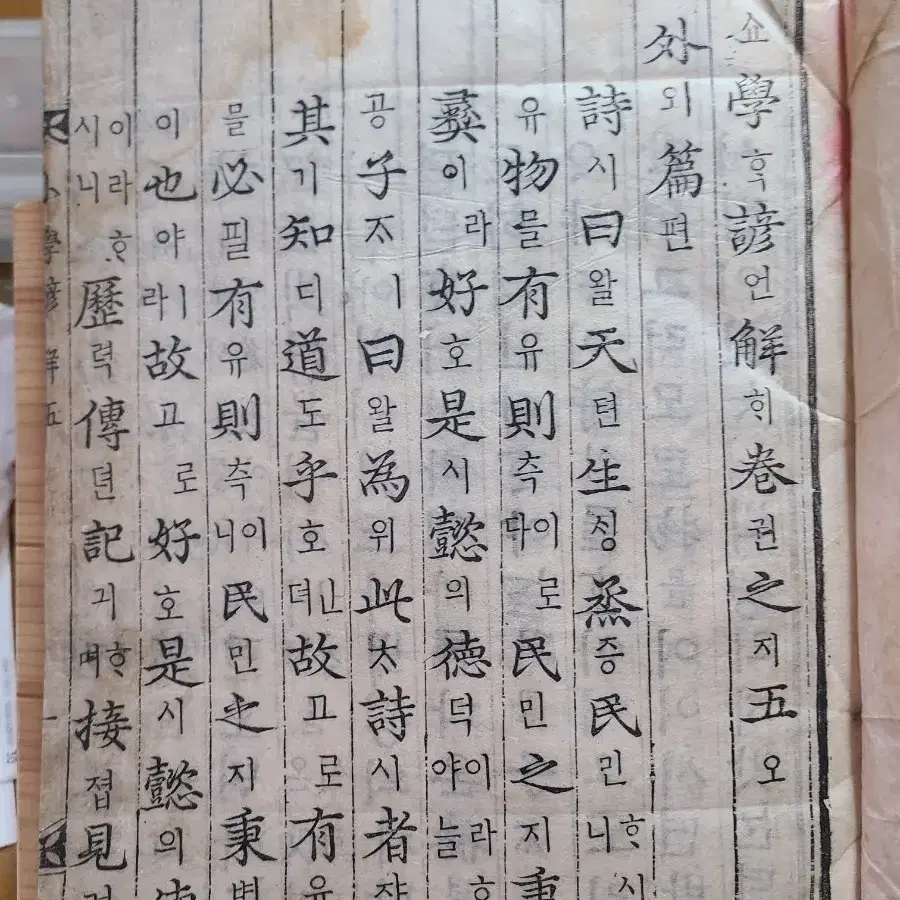 쇼學ᄒᆞᆨ諺언解ᄒᆡ卷권之지五오
外외篇편
詩시曰왈天텬生ᄉᆡᆼ烝증民민ᄒᆞ시니
유物믈有유則측이로다民민之지秉
彛이라好호是시懿의德덕이라ᄒᆞ야늘
공子ᄌᆞㅣ曰왈為위此ᄎᆞ詩시者쟈
其기知디道도乎호ㅣㄴ뎌故고로有유
믈必필有유則측이니民민之지秉병
이也야ㅣ라故고로好호是시懿의
이라ᄒᆞ시니歷력傳뎐記긔ᄒᆞ며接졉見
小學諺解五 一